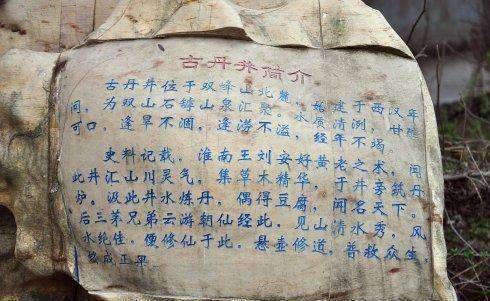 古丹井简介
古丹井位于双峰山北麓。始建于西汉年
间，为双山石罅山泉汇聚。水质清洌，甘醇
可口，逢旱不涸，逢涝不溢，经年不竭。
史料记载，淮南王刘安好黄老之术，闻
此井汇山川灵气，集草木精华，于井旁筑丹
炉。汲此井水炼丹，偶得豆腐，闻名天下。
后三茅兄弟云游朝仙经此。见山清水秀，风
水绝佳，便修仙于此。悬壶修道，普救众生，
终成正果。